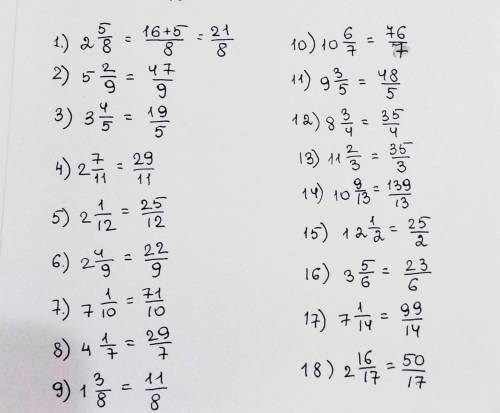 1.) 2 5/8 = 16+5/8 = 21/8
2) 5 2/9 = 47/9
3) 3 4/5 = 19/5
4) 2 7/11 = 29/11
5) 2 1/12 = 25/12
6.) 2 4/9 = 22/9
7.) 7 1/10 = 71/10
8) 4 1/7 = 29/7
9) 1 3/8 = 11/8
10) 10 6/7 = 76/7
11) 9 3/5 = 48/5
12) 8 3/4 = 35/4
13) 11 2/3 = 35/3
14) 10 9/13 = 139/13
15) 12 1/2 = 25/2
16) 3 5/6 = 23/6
17) 7 1/14 = 99/14
18) 2 16/17 = 50/17